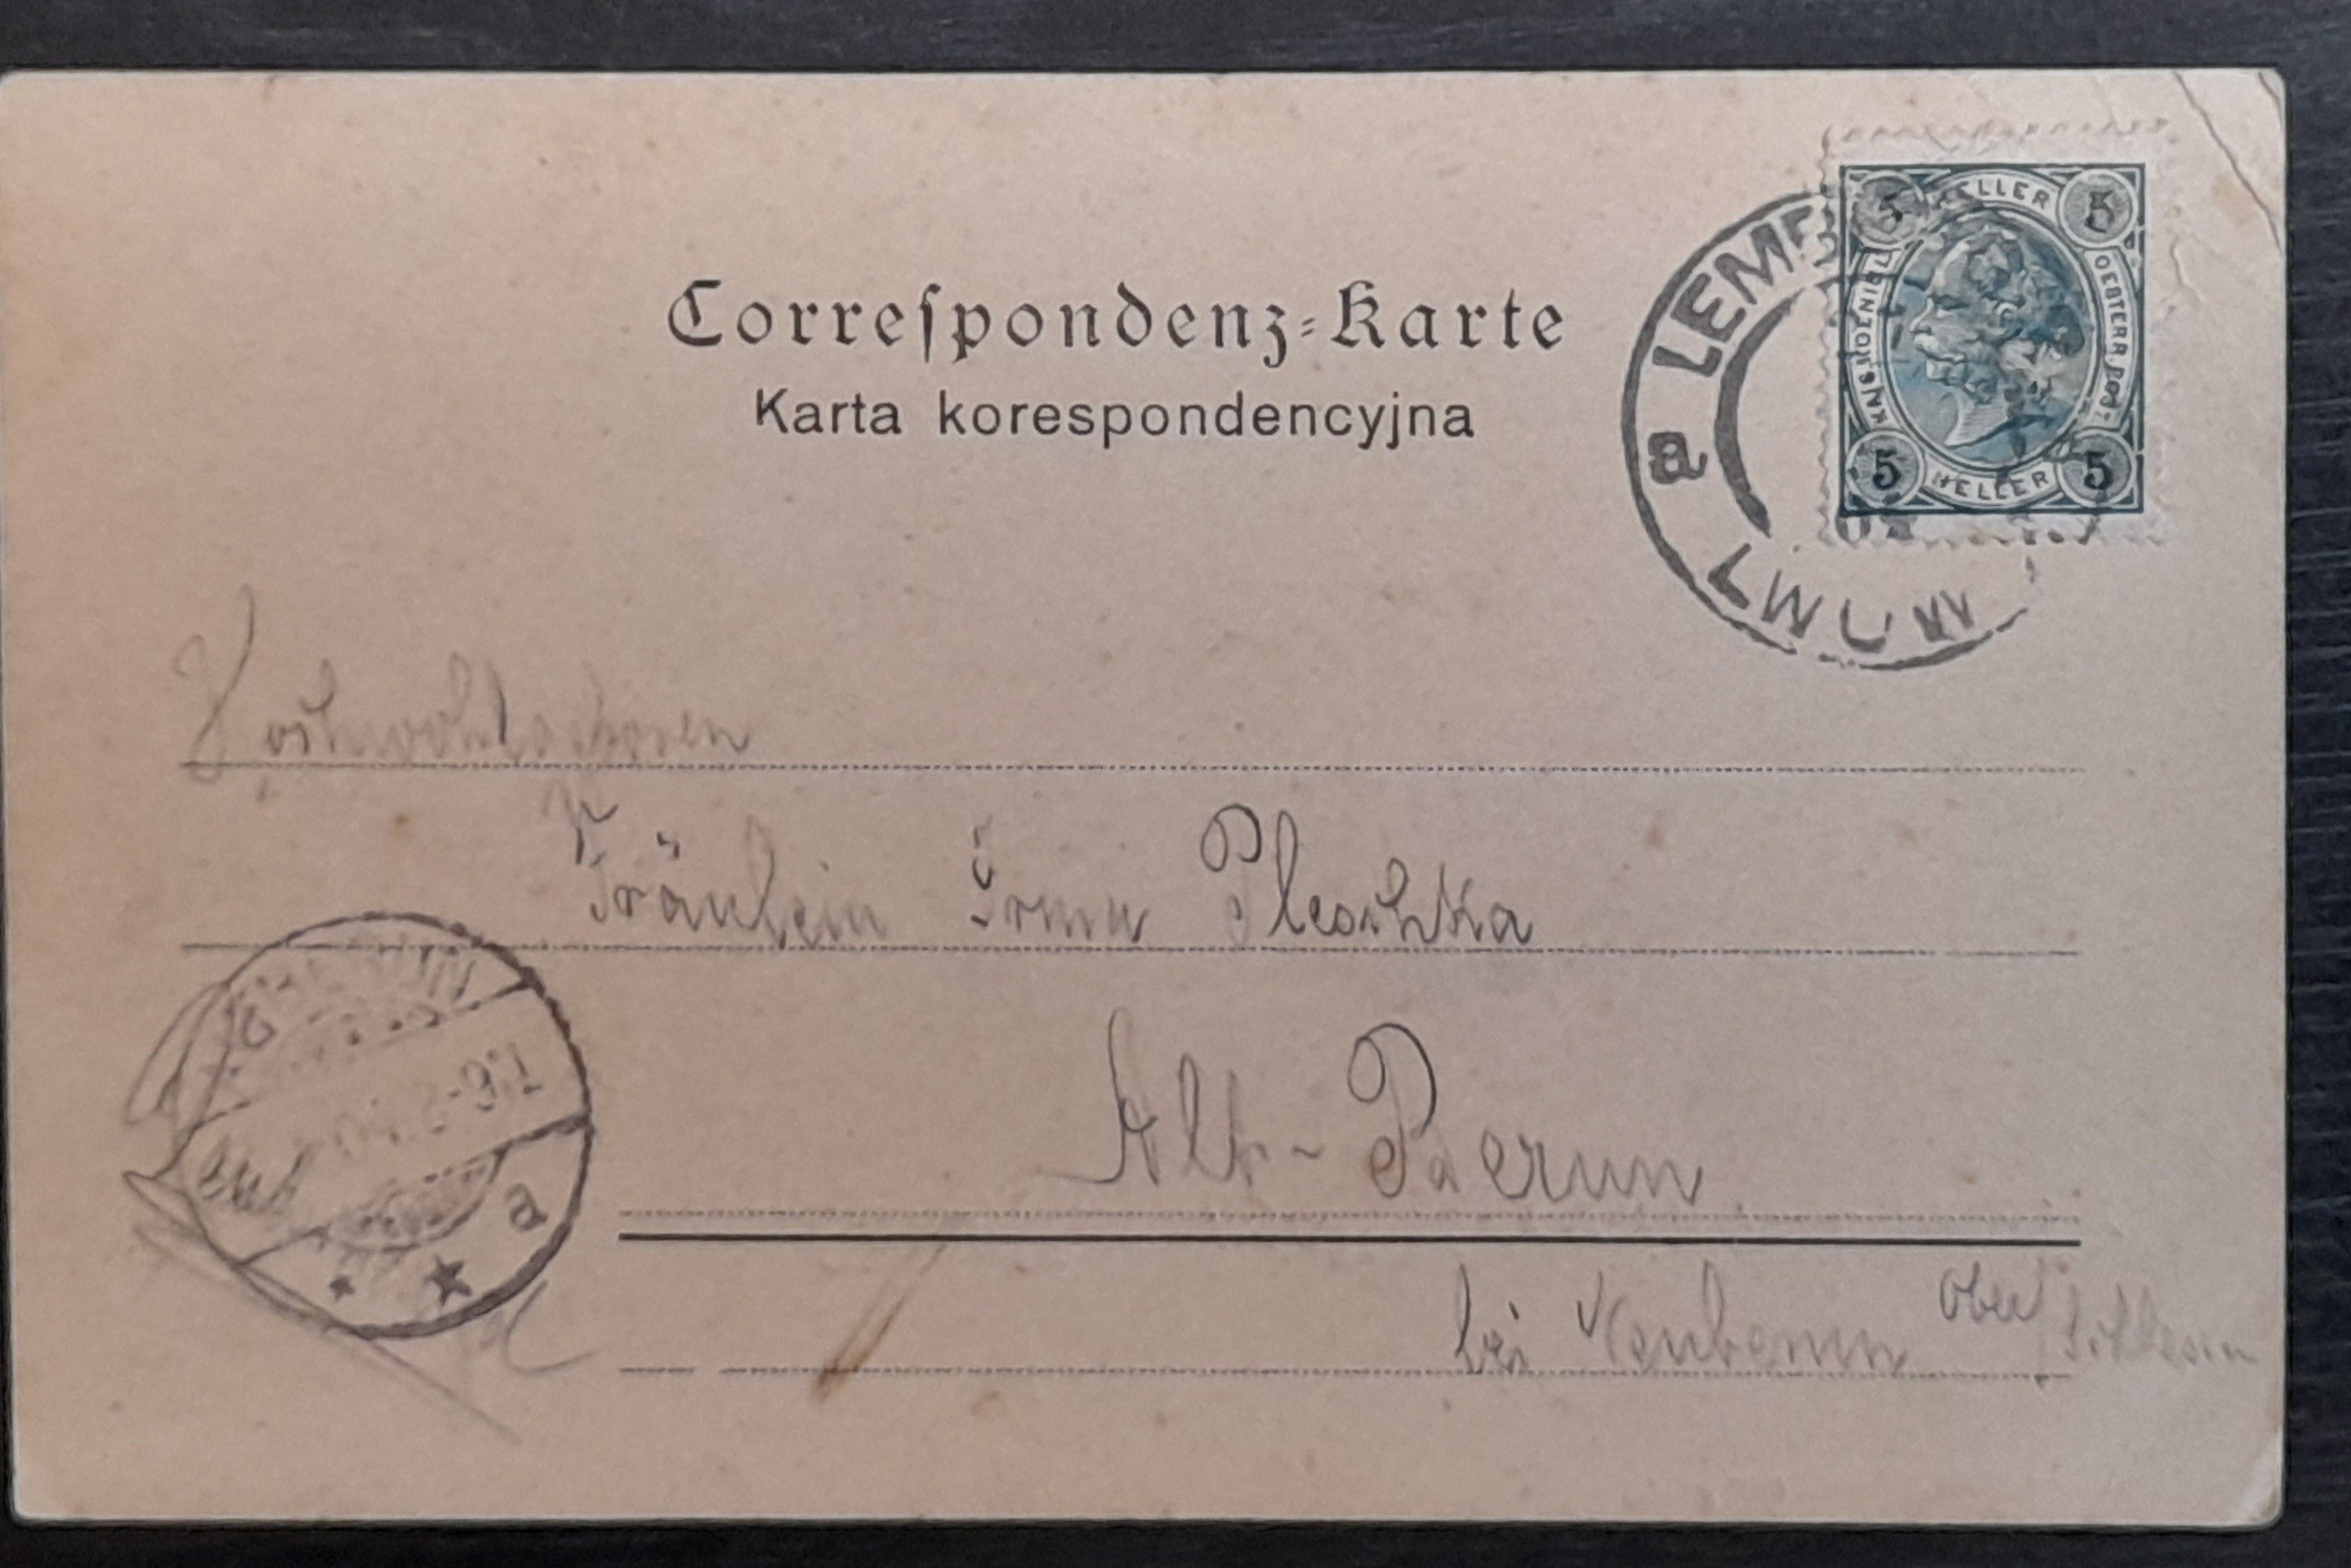 Correspondenz-Karte
Karta korespondencyjna
a LEMB
LWOW
5 HELLER 5
KAIS. KOENIGL. OESTERR. POST
5 HELLER 5
Hochwohlgeboren
Fräulein Irma Pleschka
Alt-Berun
bei Neuberun Ober Schlesien
a